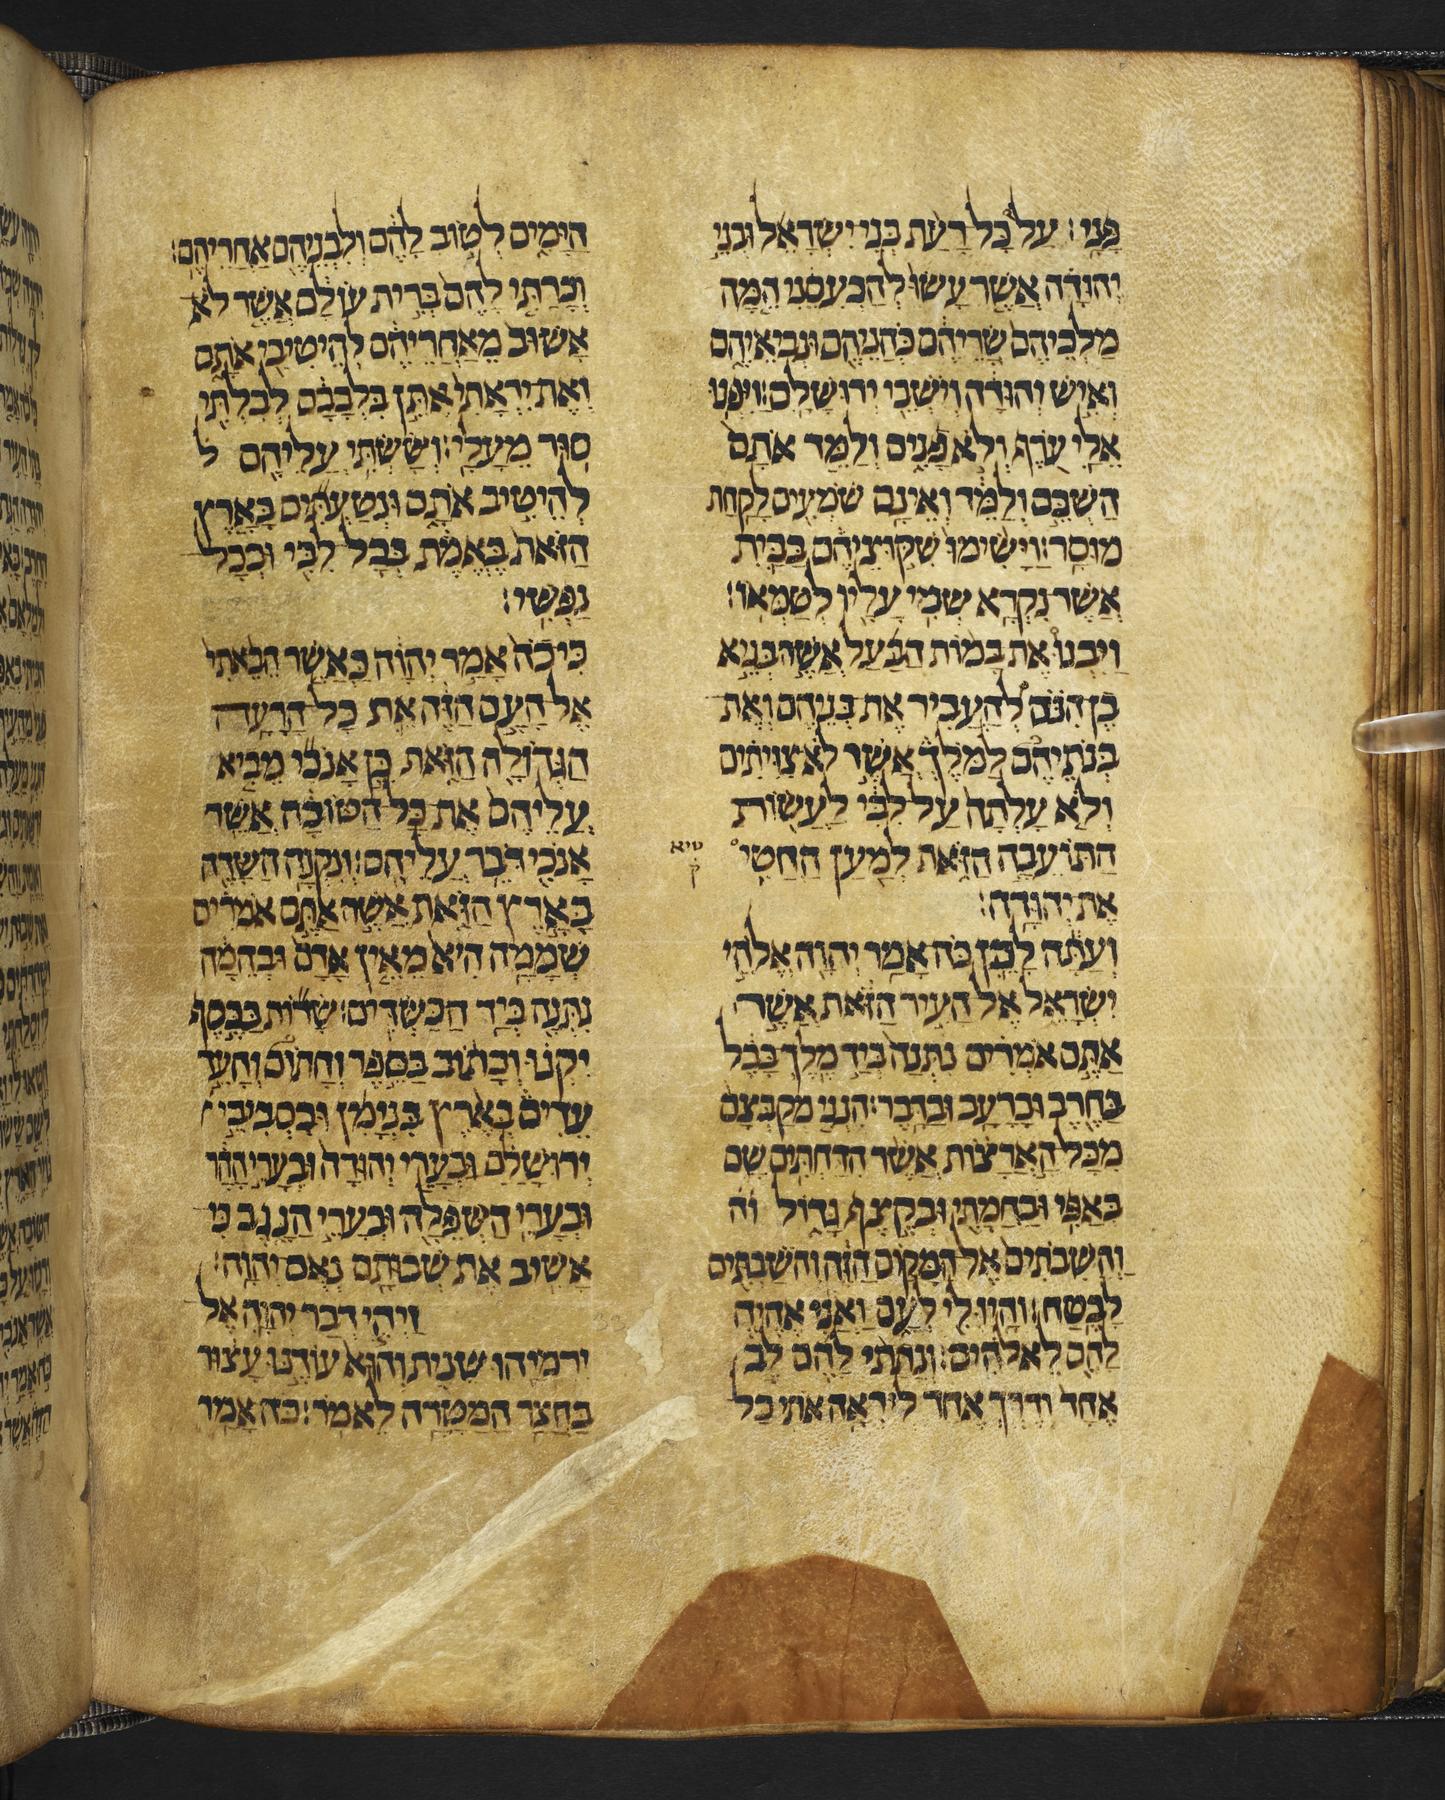 פָּנָי׃ עַל כָּל רָעַת בְּנֵי יִשְׂרָאֵל וּבְנֵי
יְהוּדָה אֲשֶׁר עָשׂוּ לְהַכְעִסֵנִי הֵמָּה
מַלְכֵיהֶם שָׂרֵיהֶם כֹּהֲנֵיהֶם וּנְבִיאֵיהֶם
וְאִישׁ יְהוּדָה וְיֹשְׁבֵי יְרוּשָׁלִָם׃ וַיִּפְנוּ
אֵלַי עֹרֶף וְלֹא פָנִים וְלַמֵּד אֹתָם
הַשְׁכֵּם וְלַמֵּד וְאֵינָם שֹׁמְעִים לָקַחַת
מוּסָר׃ וַיָּשִׂימוּ שִׁקּוּצֵיהֶם בַּבַּיִת
אֲשֶׁר נִקְרָא שְׁמִי עָלָיו לְטַמְּאוֹ׃
וַיִּבְנוּ אֶת בָּמוֹת הַבַּעַל אֲשֶׁר בְּגֵיא
בֶן הִנֹּם לְהַעֲבִיר אֶת בְּנֵיהֶם וְאֶת
בְּנֹתֵיהֶם לַמֹּלֶךְ אֲשֶׁר לֹא צִוִּיתִים
וְלֹא עָלְתָה עַל לִבִּי לַעֲשׂוֹת
הַתּוֹעֵבָה הַזֹּאת לְמַעַן הַחֲטִי
טיא
ק
אֶת יְהוּדָה׃
וְעַתָּה לָכֵן כֹּה אָמַר יְהוָה אֱלֹהֵי
יִשְׂרָאֵל אֶל הָעִיר הַזֹּאת אֲשֶׁר
אַתֶּם אֹמְרִים נִתְּנָה בְּיַד מֶלֶךְ בָּבֶל
בַּחֶרֶב וּבָרָעָב וּבַדָּבֶר׃ הִנְנִי מְקַבְּצָם
מִכָּל הָאֲרָצוֹת אֲשֶׁר הִדַּחְתִּים שָׁם
בְּאַפִּי וּבַחֲמָתִי וּבְקֶצֶף גָּדוֹל וה
וַהֲשִׁבֹתִים אֶל הַמָּקוֹם הַזֶּה וְהֹשַׁבְתִּים
לָבֶטַח׃ וְהָיוּ לִי לְעָם וַאֲנִי אֶהְיֶה
לָהֶם לֵאלֹהִים׃ וְנָתַתִּי לָהֶם לֵב
אֶחָד וְדֶרֶךְ אֶחָד לְיִרְאָה אֹתִי כָּל
הַיָּמִים לְטוֹב לָהֶם וְלִבְנֵיהֶם אַחֲרֵיהֶם׃
וְכָרַתִּי לָהֶם בְּרִית עוֹלָם אֲשֶׁר לֹא
אָשׁוּב מֵאַחֲרֵיהֶם לְהֵיטִיבִי אֹתָם
וְאֶת יִרְאָתִי אֶתֵּן בִּלְבָבָם לְבִלְתִּי
סוּר מֵעָלָי׃ וְשַׂשְׂתִּי עֲלֵיהֶם ל
לְהֵיטִיב אֹתָם וּנְטַעְתִּים בָּאָרֶץ
הַזֹּאת בֶּאֱמֶת בְּכָל לִבִּי וּבְכָל
נַפְשִׁי׃
כִּי כֹה אָמַר יְהוָה כַּאֲשֶׁר הֵבֵאתִי
אֶל הָעָם הַזֶּה אֵת כָּל הָרָעָה
הַגְּדוֹלָה הַזֹּאת כֵּן אָנֹכִי מֵבִיא
עֲלֵיהֶם אֶת כָּל הַטּוֹבָה אֲשֶׁר
אָנֹכִי דֹּבֵר עֲלֵיהֶם׃ וְנִקְנָה הַשָּׂדֶה
בָּאָרֶץ הַזֹּאת אֲשֶׁר אַתֶּם אֹמְרִים
שְׁמָמָה הִיא מֵאֵין אָדָם וּבְהֵמָה
נִתְּנָה בְּיַד הַכַּשְׂדִּים׃ שָׂדוֹת בַּכֶּסֶף
יִקְנוּ וְכָתוֹב בַּסֵּפֶר וְחָתוֹם וְהָעֵד
עֵדִים בְּאֶרֶץ בִּנְיָמִן וּבִסְבִיבֵי
יְרוּשָׁלִַם וּבְעָרֵי יְהוּדָה וּבְעָרֵי הָהָר
וּבְעָרֵי הַשְּׁפֵלָה וּבְעָרֵי הַנֶּגֶב כִּי
אָשִׁיב אֶת שְׁבוּתָם נְאֻם יְהוָה׃
וַיְהִי דְבַר יְהוָה אֶל
יִרְמְיָהוּ שֵׁנִית וְהוּא עוֹדֶנּוּ עָצוּר
בַּחֲצַר הַמַּטָּרָה לֵאמֹר׃ כֹּה אָמַר